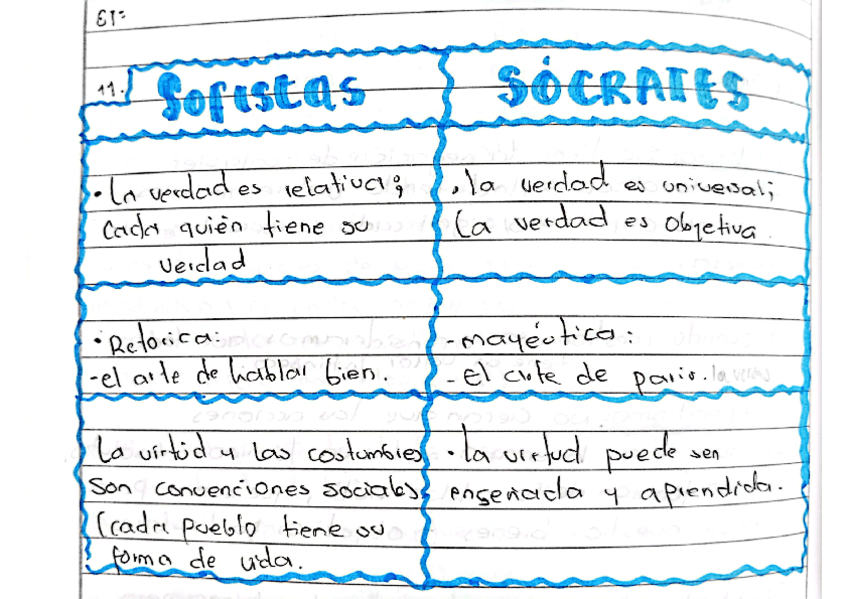 ET:
11. Sofistas SÓCRATES
• La verdad es relativa; • la verdad es universal;
Cada quién tiene su La verdad es Objetiva.
verdad
• Retorica: - mayéutica:
- el arte de hablar bien. - El arte de parir. la verdad
La virtúd y las costumbres • la virtud puede ser
son convenciones sociales enseñada y aprendida.
(cada pueblo tiene su
forma de vida.